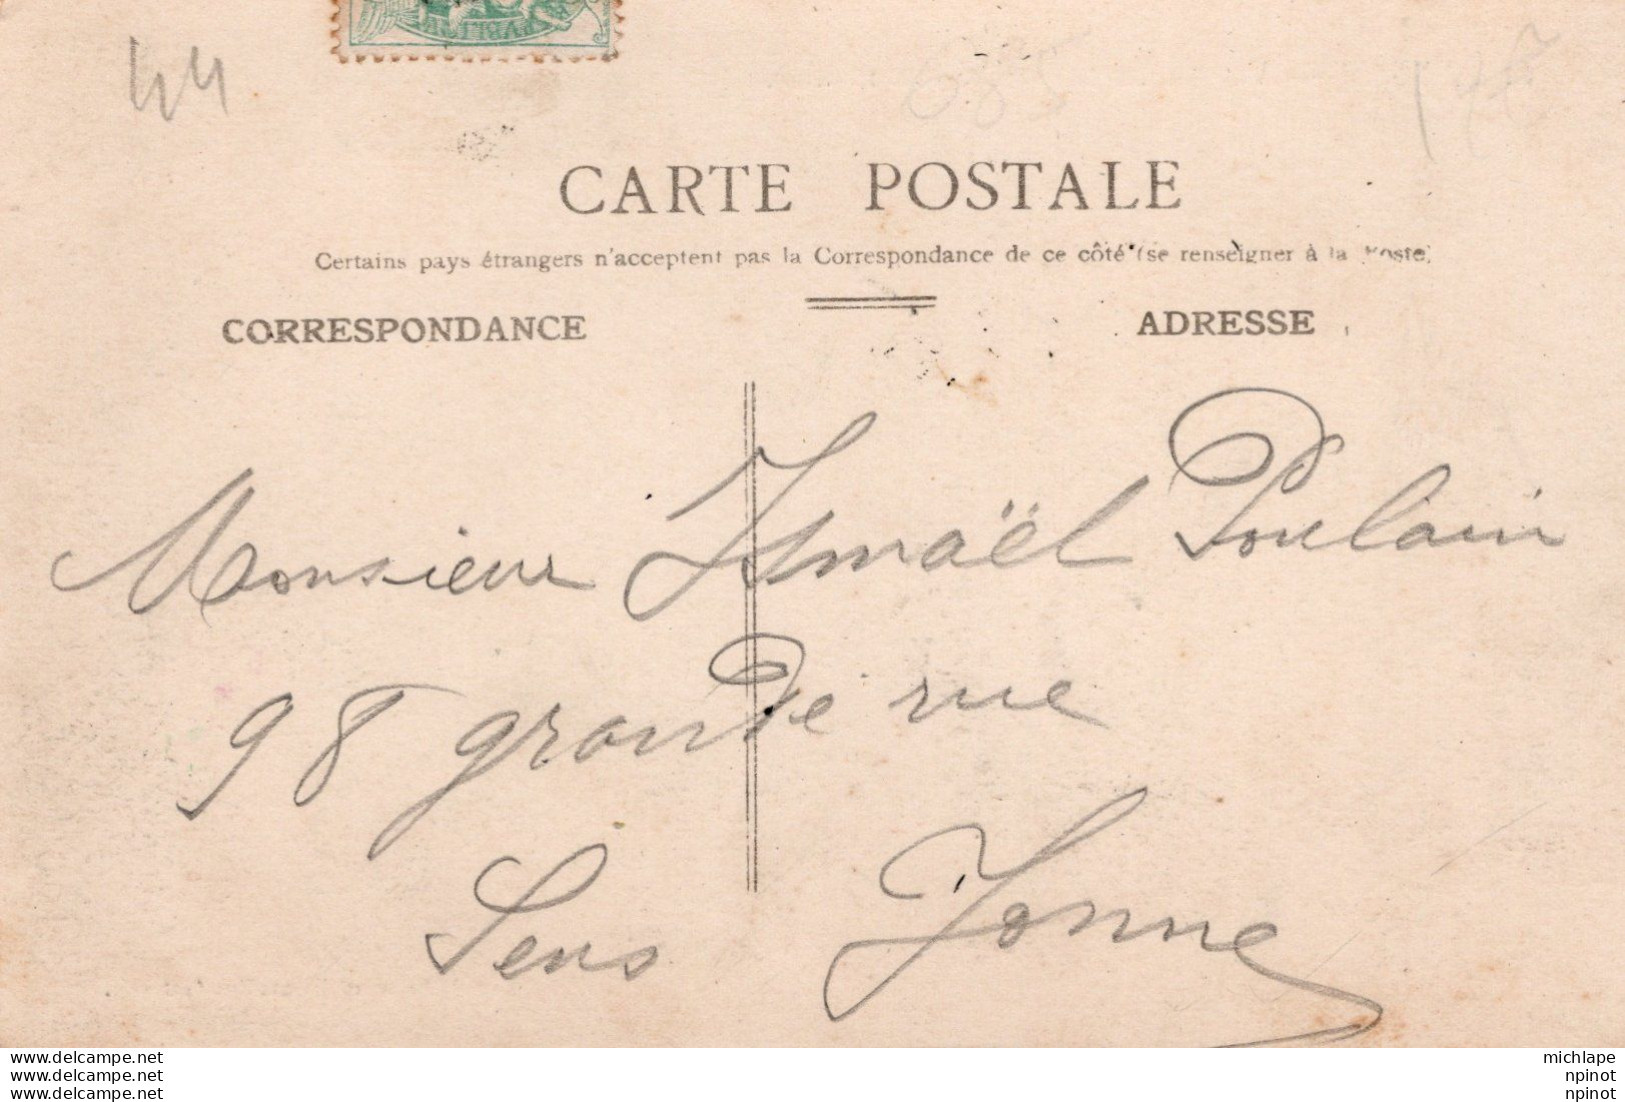 44
CARTE POSTALE
Certains pays étrangers n'acceptent pas la Correspondance de ce côté (se renseigner à la Poste)
CORRESPONDANCE
ADRESSE
Monsieur Ismaël Poulain
98 grande rue
Sens Yonne
www.delcampe.net
www.delcampe.net
www.delcampe.net
michlape
npinot
npinot